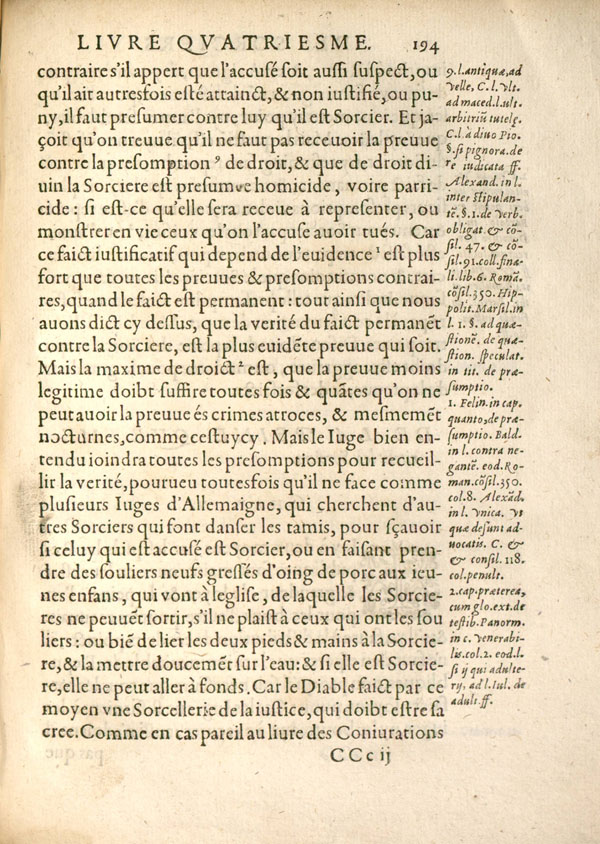 LIVRE QVATRIESME. 194
contraire s'il appert que l'accusé soit aussi suspect, ou
qu'il ait autresfois esté attainct, & non iustifié, ou pu-
ny, il faut presumer contre luy qu'il est Sorcier. Et ja-
çoit qu'on treuue qu'il ne faut pas receuoir la preuue
contre la presomption ⁹ de droit, & que de droit di-
uin la Sorciere est presumee homicide, voire parri-
cide : si est-ce qu'elle sera receue à representer, ou
monstrer en vie ceux qu'on l'accuse auoir tués. Car
ce faict iustificatif qui depend de l'euidence ¹ est plus
fort que toutes les preuues & presomptions contrai-
res, quand le faict est permanent : tout ainsi que nous
auons dict cy dessus, que la verité du faict permanẽt
contre la Sorciere, est la plus euidẽte preuue qui soit.
Mais la maxime de droict ² est, que la preuue moins
legitime doibt suffire toutes fois & quãtes qu'on ne
peut auoir la preuue és crimes atroces, & mesmemẽt
nocturnes, comme cestuycy. Mais le Iuge bien en-
tendu ioindra toutes les presomptions pour recueil-
lir la verité, pourueu toutesfois qu'il ne face comme
plusieurs Iuges d'Allemaigne, qui cherchent d'au-
tres Sorciers qui font danser les tamis, pour sçauoir
si celuy qui est accusé est Sorcier, ou en faisant pren-
dre des souliers neufs gressés d'oing de porc aux ieu-
nes enfans, qui vont à leglise, de laquelle les Sorcie-
res ne peuuẽt sortir, s'il ne plaist à ceux qui ont les sou
liers : ou biẽ de lier les deux pieds & mains à la Sorcie-
re, & la mettre doucemẽt sur l'eau: & si elle est Sorcie-
re, elle ne peut aller à fonds. Car le Diable faict par ce
moyen vne Sorcellerie de la iustice, qui doibt estre sa
cree. Comme en cas pareil au liure des Coniurations
CCc ij
9. l. antiquæ, ad
Velle, C. l. vlt.
ad maced. l. ult.
arbitriũ tutelę.
C. l. à diuo Pio.
§. si pignora. de
re iudicata ff.
Alexand. in l.
inter stipulan-
tẽ. §. 1. de verb.
obligat & cõ-
sil. 47. & cõ-
sil. 91. coll. fina.
li. lib. 6. Romã.
cõsil. 350. Hip-
polit. Marsil. in
l. 1. §. ad quæ-
stionẽ. de quæ-
stion. speculat.
in tit. de præ-
sumptio.
1. Felin. in cap.
quanto, de præ-
sumptio. Bald.
in l. contra ne-
gantẽ. eod. Ro-
man. cõsil. 350.
col. 8. Alexãd.
in l. vnica. vt
quæ desunt ad-
uocatis. C. &
& consil. 118.
col. penult.
2. cap. præterea,
cum glo. ext. de
testib. Panorm.
in c. venerabi-
lis. col. 2. eod. l.
si ij qui adulte-
rij, ad l. Iul. de
adult. ff.